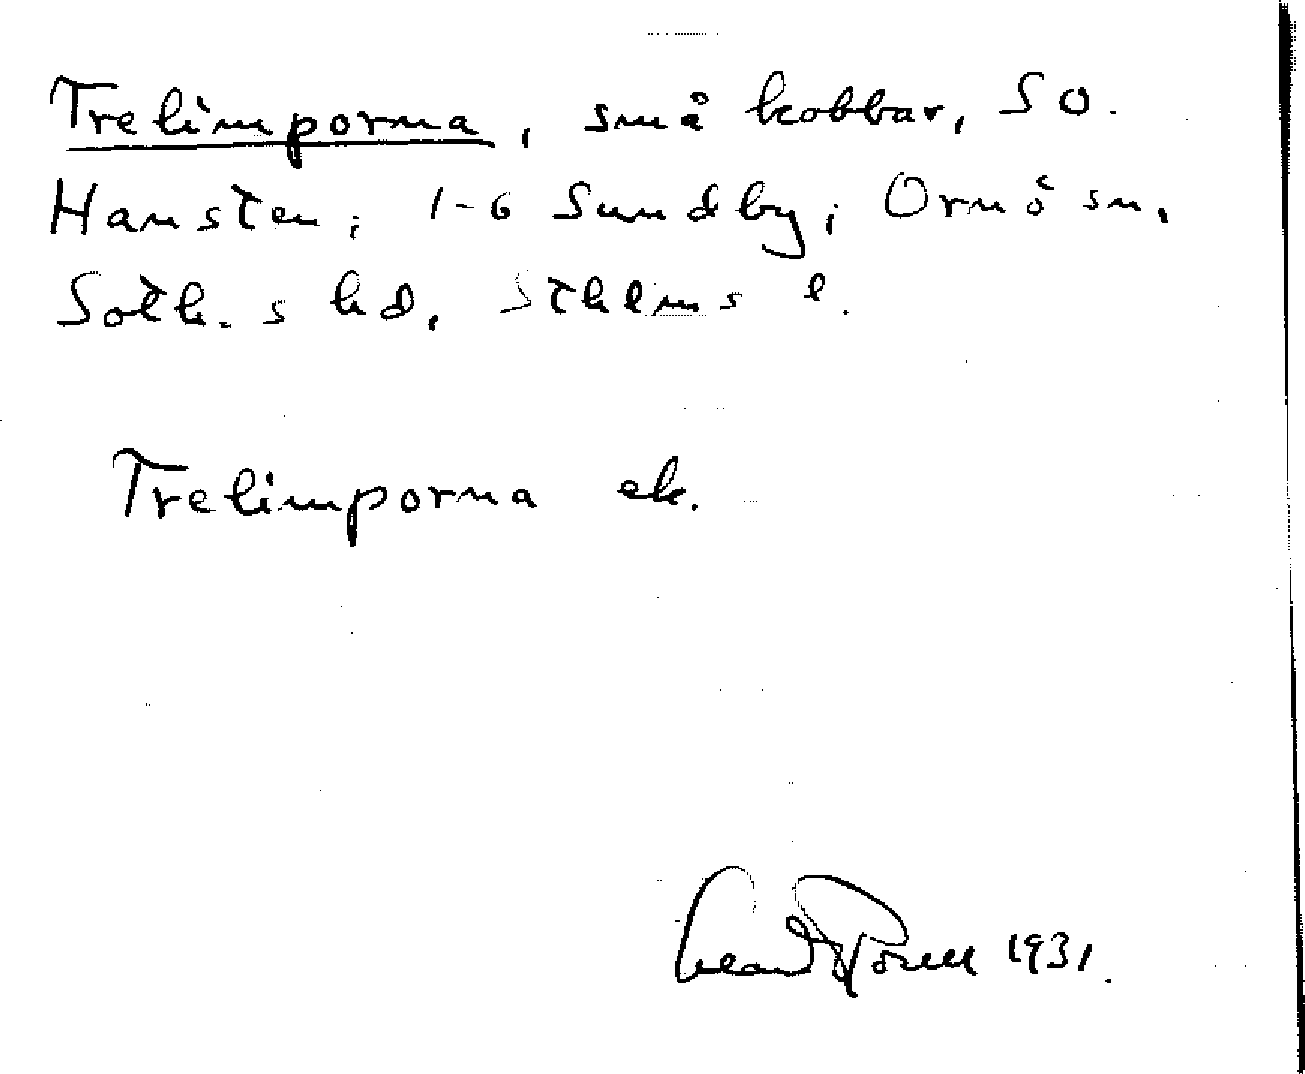 Trelimporna, små kobbar, SO.
Hansten; 1-6 Sundby; Ornö sn.
Soth.s hd, Sthlms l.
Trelimporna ek.
1931.